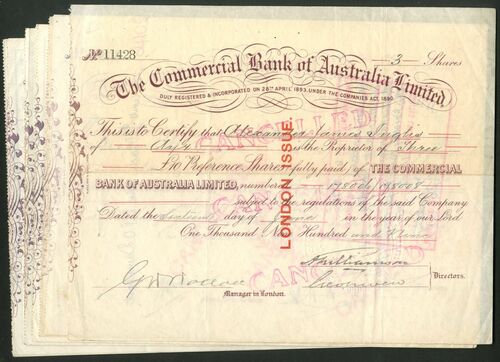 No 11423 3 Shares
The Commercial Bank of Australia Limited
DULY REGISTERED & INCORPORATED ON 28TH APRIL 1893, UNDER THE COMPANIES ACT, 1890.
CANCELLED
This is to Certify that Alexander James Inglis
of is the Proprietor of Three
£10 Preference Shares fully paid, of THE COMMERCIAL
BANK OF AUSTRALIA LIMITED, numbered 178006/178008
subject to the regulations of the said Company
Dated the Sixteenth day of June in the year of our Lord
One Thousand Nine Hundred and Nine
LONDON ISSUE.
Directors.
Manager in London.